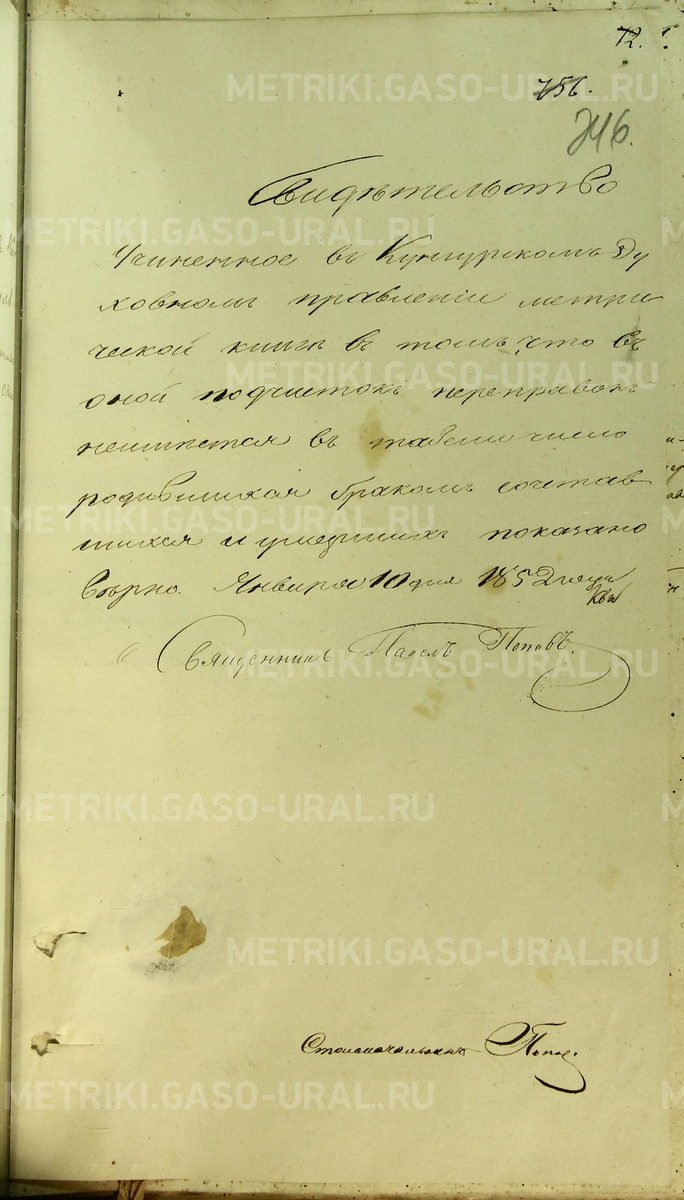 72.
756.
246.
Свидѣтельство
Учиненное въ Кунгурскомъ Ду
ховномъ правленіи метри
ческой книгѣ въ томъ, что въ
оной подчистокъ переправокъ
неимѣется въ табели число
родившихся бракомъ сочетав
шихся и умершихъ показано
вѣрно. Января 10 дня 1852 года
Священникъ Павелъ Поповъ.
Столоначальникъ Попов.
METRIKI.GASO-URAL.RU